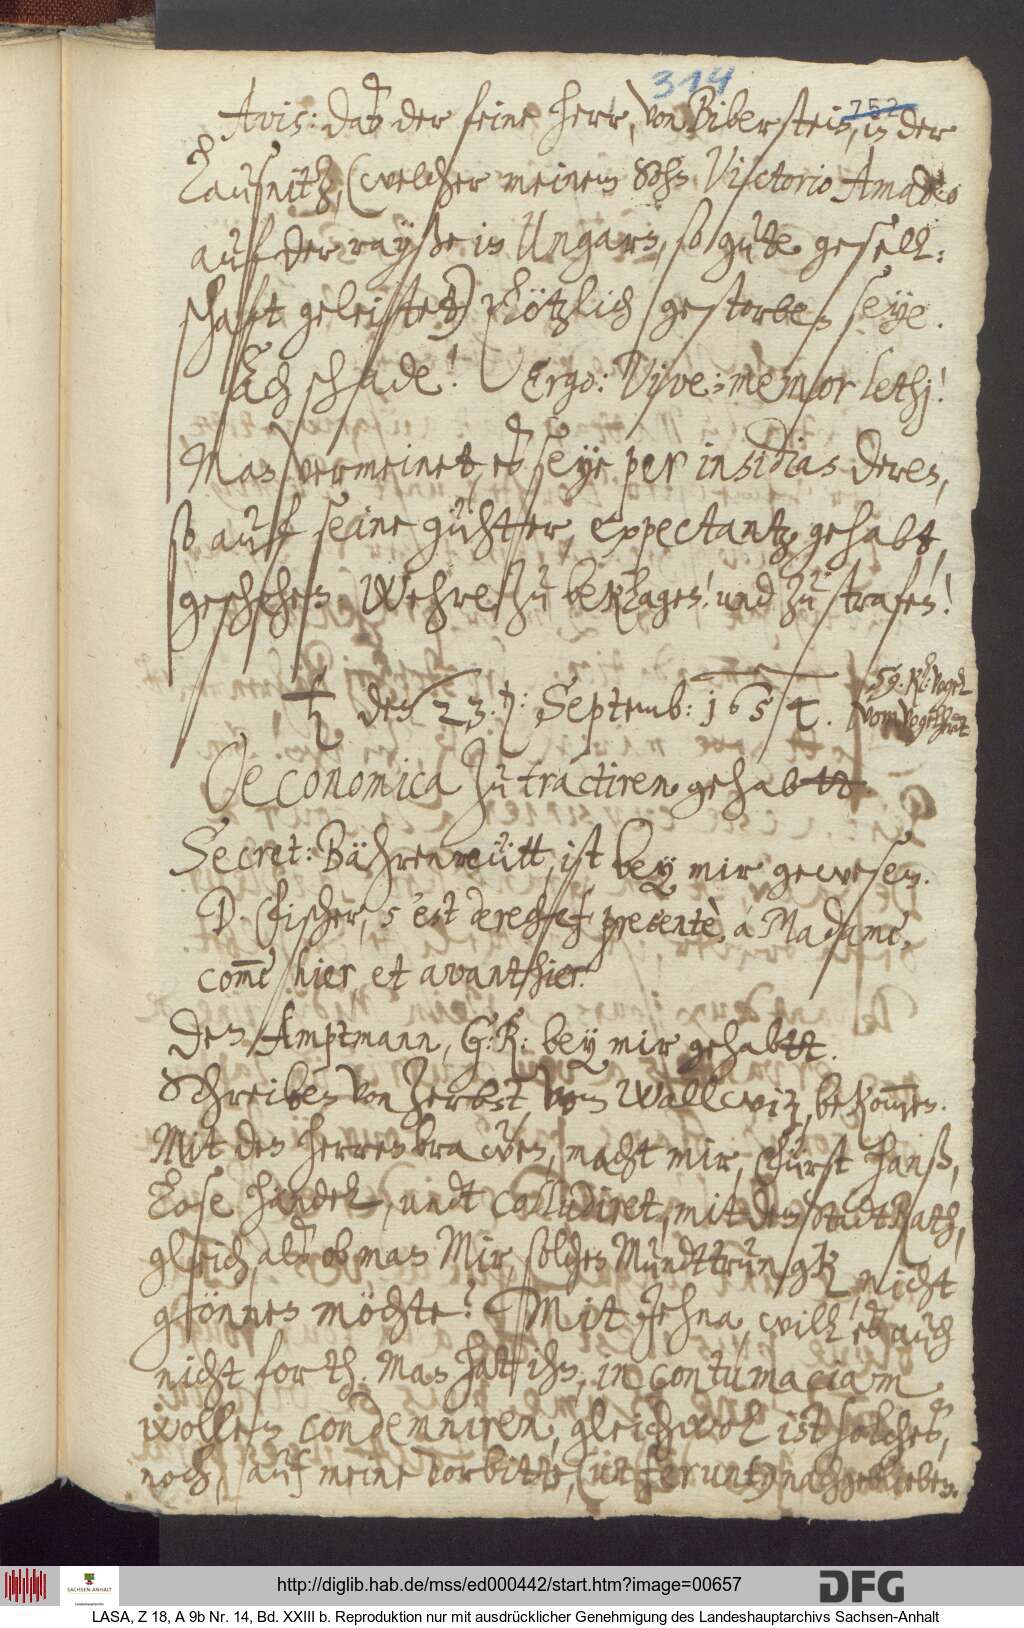 314
252
Avis: daß der feine herr, von Biberstein, in der
Laußnitz, (welcher meinem Sohn Victorio Amadeo
auf der rayße in Ungarn, so gute gesell:
schafft geleistet) plötzlich gestorben seye.
Ach schade! Ergo: Vive: memor lethj!
Man vermeinet, eß seye per insidias deren,
so auf seine gühtter, expectantz gehabt,
geschehen. Wehre zu beklagen! und zu strafen!
♄ den 23. : Septemb: 1654.
59. Kl: Vogel
vom Vogelherdt
Oeconomica zu tractiren gehabtt.
Secret: Bährenreütt, ist bey mir gewesen.
D. Fischer, s'est derechef presentè, á Madame,
com̅e hier, et avanthier.
Den Amptmann, G: R: bey mir gehabtt.
Schreiben von Zerbst, vom Wallwitz, bekom̅en.
Mit den herren braẅen, macht mir, Fürst Hanß,
lose händel, undt colludiret, mit dem StadtRath,
gleich alß ob man Mir, solchen Mundttrungk nicht
gönnen möchte? Mit Jehna, will eß auch
nicht forth. Man hat ihn, in contumaciam
wollen condemniren, gleichwol ist solches,
noch, auf meine vorbitte, (ut ferunt) nachgeblieben.
http://diglib.hab.de/mss/ed000442/start.htm?image=00657
SACHSEN-ANHALT
DFG
LASA, Z 18, A 9b Nr. 14, Bd. XXIII b. Reproduktion nur mit ausdrücklicher Genehmigung des Landeshauptarchivs Sachsen-Anhalt